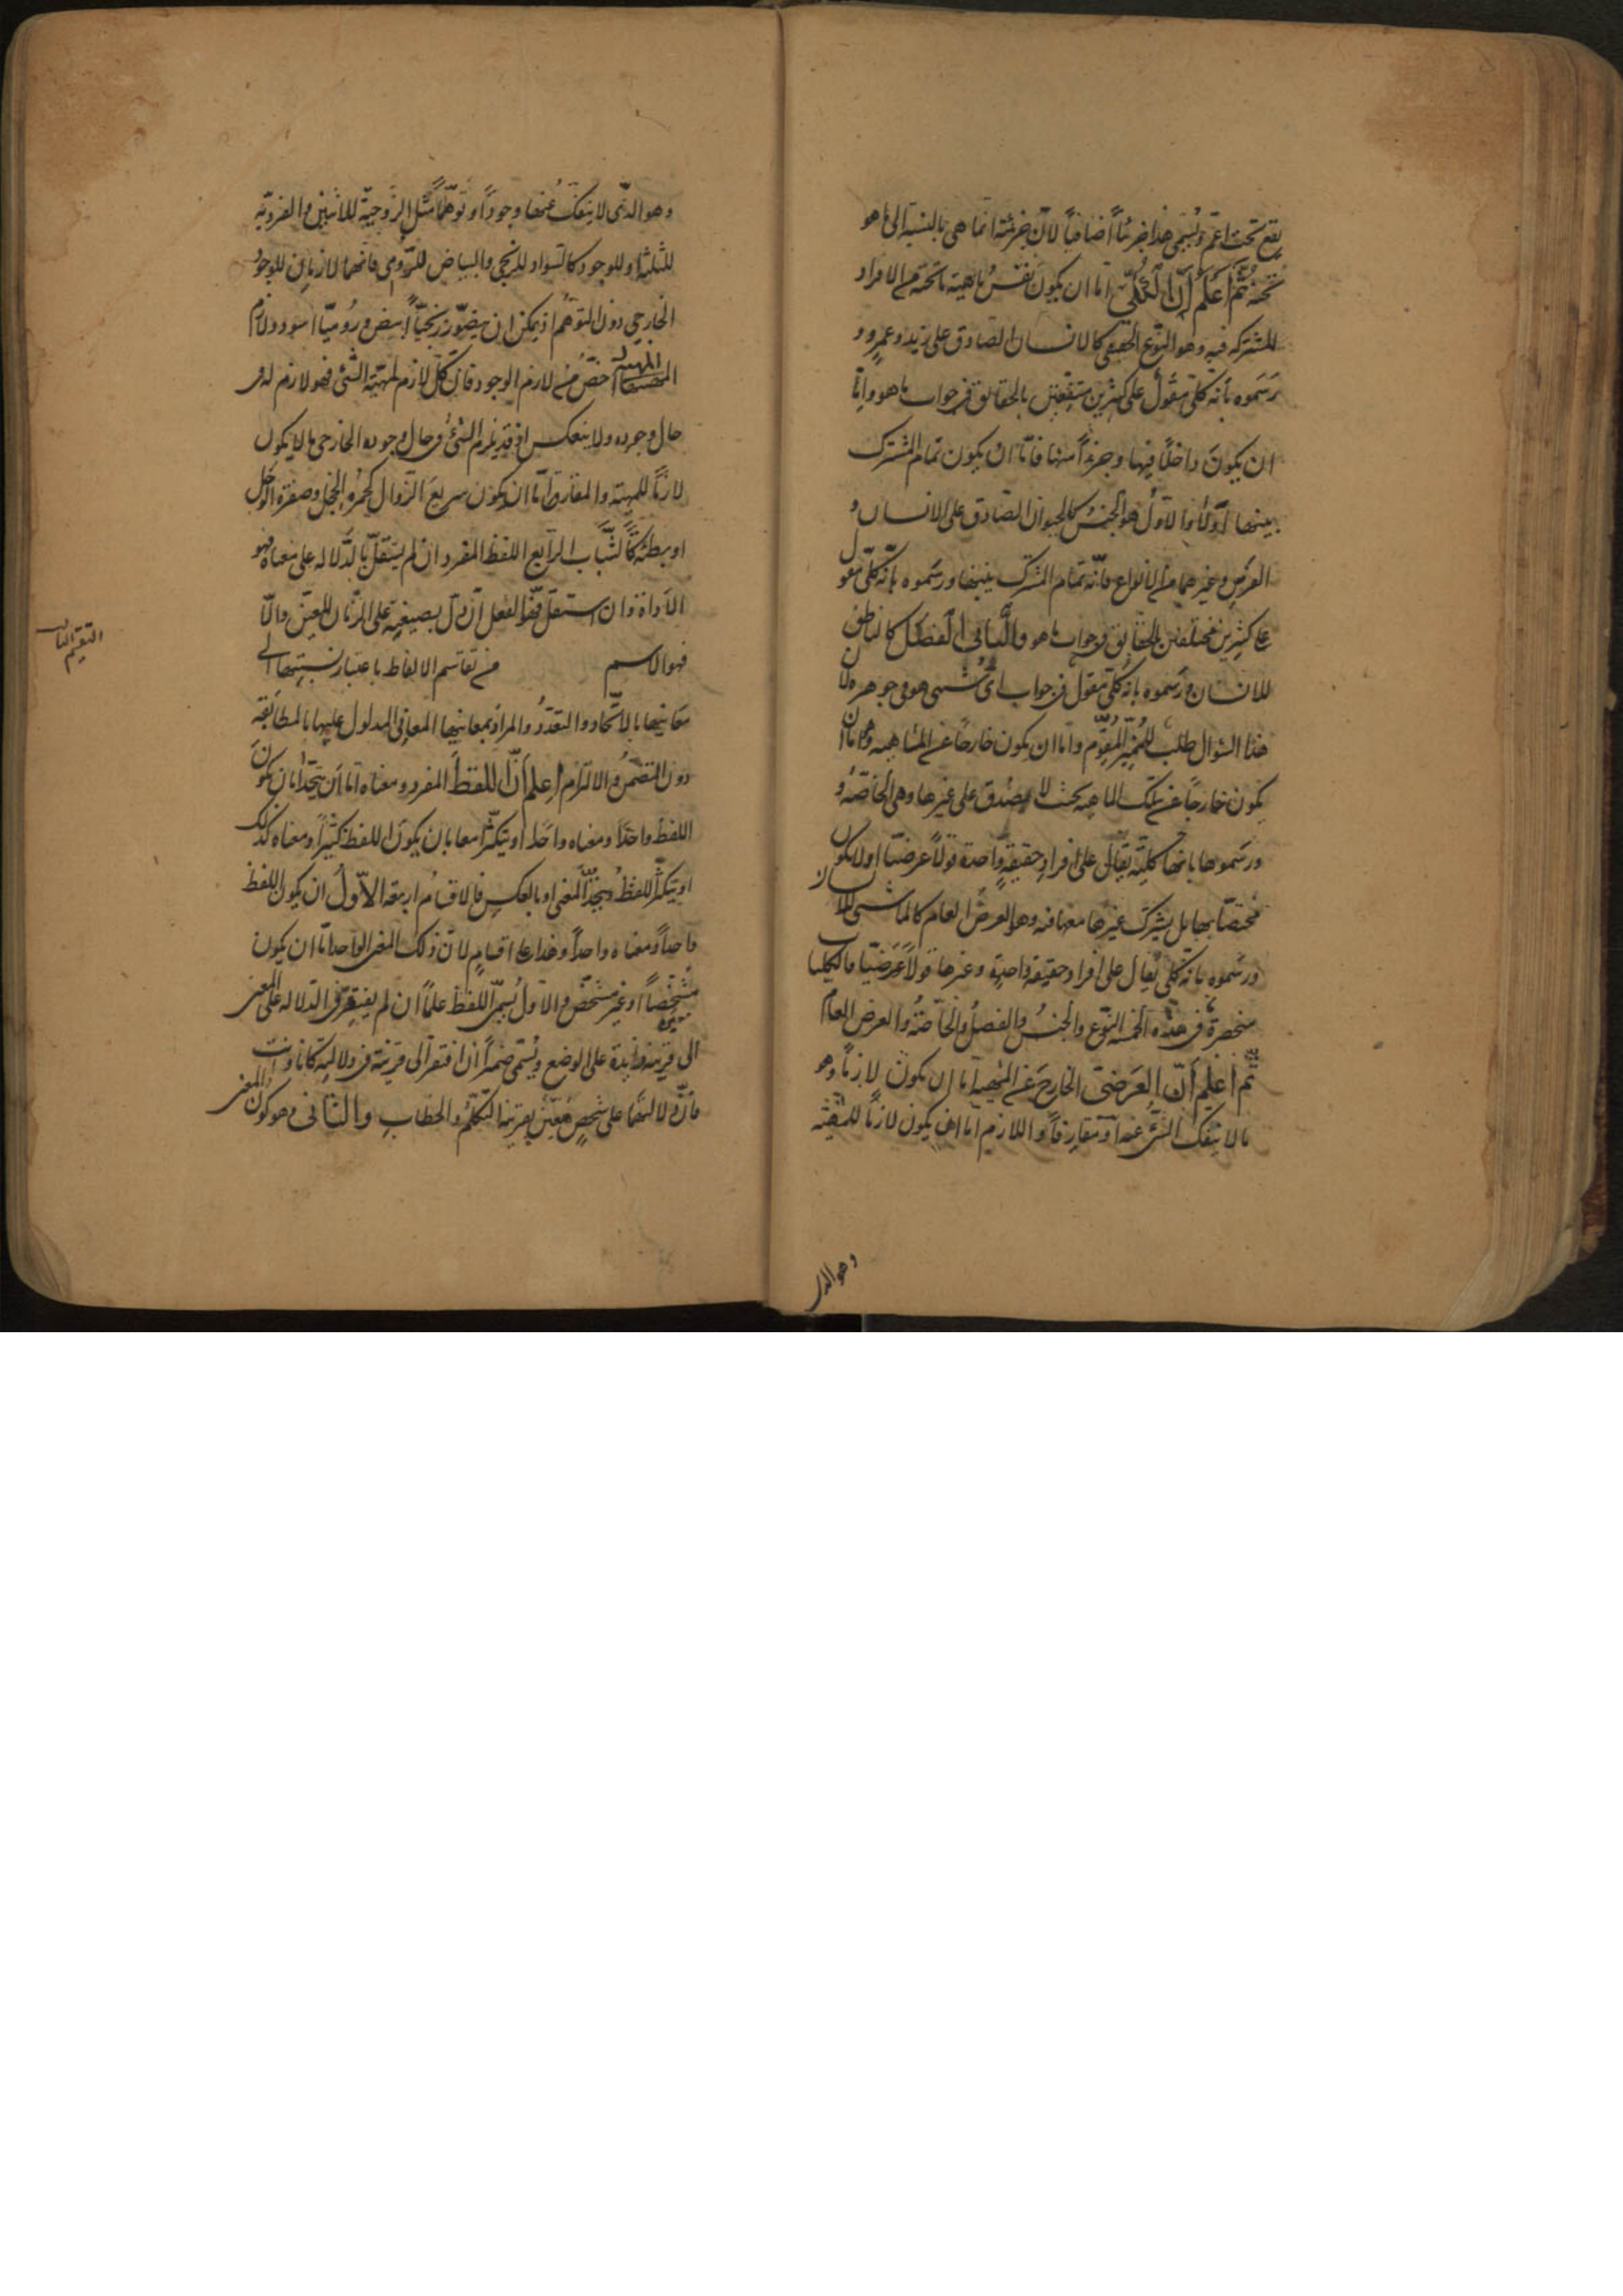 يقع تحت اعم ويسمى هذا جزئيا اضافيا لان جزئيته انما هى بالنسبة الى ما هو
تحته ثم اعلم ان الكلى اما ان يكون نفس ماهية ما تحته من الافراد
المشتركه فيه وهو النوع الحقيقى كالانسان الصادق على زيد وعمرو و
رسموه بانه كلى مقول على كثيرين متفقين بالحقائق فى جواب ما هو واما
ان يكون داخلا فيها وجزءا منها فاما ان يكون تمام المشترك
بينها اولا والاول هو الجنس كالحيوان الصادق على الانسان و
الفرس وغيرهما من الانواع فانه تمام المشترك بينها ورسموه بانه كلى مقول
على كثيرين مختلفين بالحقايق فى جواب ما هو والثانى الفصل كالناطق
للانسان ورسموه بانه كلى مقول فى جواب اى شىء هو فى جوهره لان
هذا السوال طلب للمميز المقوم واما ان يكون خارجا عن الماهيه وهو اما ان
يكون خارجا عن تلك الماهيه بحيث لا يصدق على غيرها وهى الخاصة و
ورسموها بانها كلية يقال على افراد حقيقة واحدة قولا عرضيا او لا يكون
مختصا بها بل يشترك غيرها معها فيه وهو العرض العام كالماشى للانسان
ورسموه بانه كلى يقال على افراد حقيقة واحدة وغيرها قولا عرضيا فالكليات
منحصرة فى هذه الخمسه النوع والجنس والفصل والخاصة والعرض العام
ثم اعلم ان العرضى الخارج عن المهية اما ان يكون لازما وهو
ما لا ينفك الشئ عنه او مفارقا واللازم اما ان يكون لازما للمهية
وهو الذى
وهو الذى لا ينفك عنها وجودا وتوهما مثل الزوجية للاثنين والفردية
للثلثة او للوجود كالسواد للزنجى والبياض للرومى فانهما لازمان للوجود
الخارجى دون التوهم اذ يمكن ان يتصور زنجيا ابيض وروميا اسود ولازم
المهية اخص من لازم الوجود فان كل لازم لمهية الشئ فهو لازم له فى
حال وجوده ولا ينعكس اذ قد يلزم الشئ فى حال وجوده الخارجى ما لا يكون
لازما للمهية والمفارق اما ان يكون سريع الزوال كحمرة الخجل وصفرة الوجل
او بطئه كالشباب الرابع اللفظ المفرد ان لم يستقل بالدلالة على معناه فهو
الاداة وان استقل فهو الفعل ان دل بصيغته على الزمان المعين والا
فهو الاسم من تقاسم الالفاظ باعتبار نسبتها الى
التقسيم الثانى
معانيها بالاتحاد والتعدد والمراد بمعانيها المعانى المدلول عليها بالمطابقة
دون التضمن والالتزام اعلم ان اللفظ المفرد ومعناه اما ان يتحدا بان يكون
اللفظ واحدا ومعناه واحدا او يتكثرا معا بان يكون اللفظ كثيرا ومعناه كذلك
او يتكثر اللفظ ويتحد المعنى او بالعكس فالاقسام اربعة الاول ان يكون اللفظ
واحدا ومعناه واحدا وهذا على اقسام لان ذلك المعنى الواحد اما ان يكون
مشخصا او غير مشخص والاول يسمى اللفظ علما ان لم يفتقر فى الدلالة على المعنى
الى قرينة زايدة على الوضع ويسمى ضميرا ان افتقر الى قرينة فى دلالته كانا وانت
فان دلالتهما على شخص معين بقرينة التكلم والخطاب والثانى وهو كون المعنى